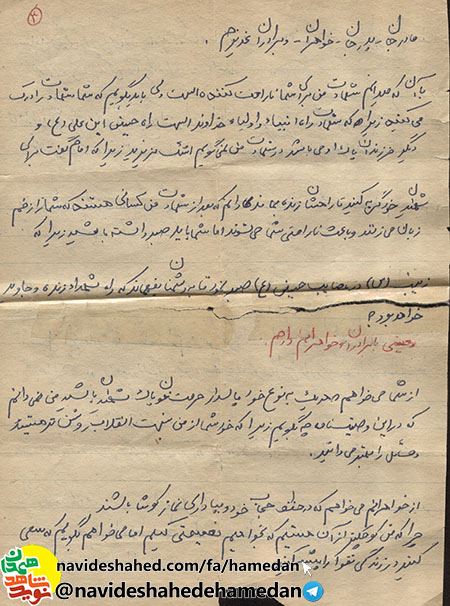 ۲
مادرجان - پدرجان - خواهران - و برادران عزیزم .
با آن که میدانم شهادت من برای شما ناراحت کننده است ولی باید بگویم که شما شهادت را درک
می کنید زیرا که شهادت راه انبیاء و اولیاء خداوند است راه حسین ابن علی (ع) و
دیگر فرزندان پاک او می باشد در شهادت من نمی گویم اشک نریزید زیرا که امام گفت برای
شهیدان خود گریه کنید ناراحتتان زنده می ماند می دانم که بعد از شهادت من کسانی هستند که شما را زخم
زبان می زنند و باعث ناراحتی شما می شوند اما شما باید صبر داشته باشید زیرا که
زینب (س) در مصایب حسین (ع) صبر کرد تا به دشمنان بفهماند که راه شهداء زنده و جاوید
خواهد بود
وصیتی با برادران و خواهرانم دارم
از شما می خواهم هر یک به نوع خود پاسدار حرمت خون پاک شهیدان باشید من نمی دانم
که در این وصیتنامه چه بگویم زیرا که خود شما از من نسبت به انقلاب روشن تر هستید
و مسائل را بهتر می دانید.
از خواهرانم می خواهم که در حفظ حجاب خود و بپا داری نماز کوشا باشند
چرا که من کوچکتر از آن هستم که بخواهم نصیحتی کنم اما می خواهم بگویم که سعی
کنید در زندگی تقوا را پیشه
navideshahed.com/fa/hamedan
@navideshahedehamedan
نوید شاهد همدان